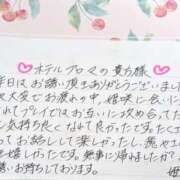 ホテルアロマの貴方様
昨日はお誘い頂きありがとうございました
大変でお疲れの中、姫咲に会いに
てプレイではお互いに攻め合ってた
気持ち良くなれて良かったです。たくさん
ってお話しして楽しかったし、癒やされ
嬉しかったです。無事に帰れましたか？
お待ちしております。